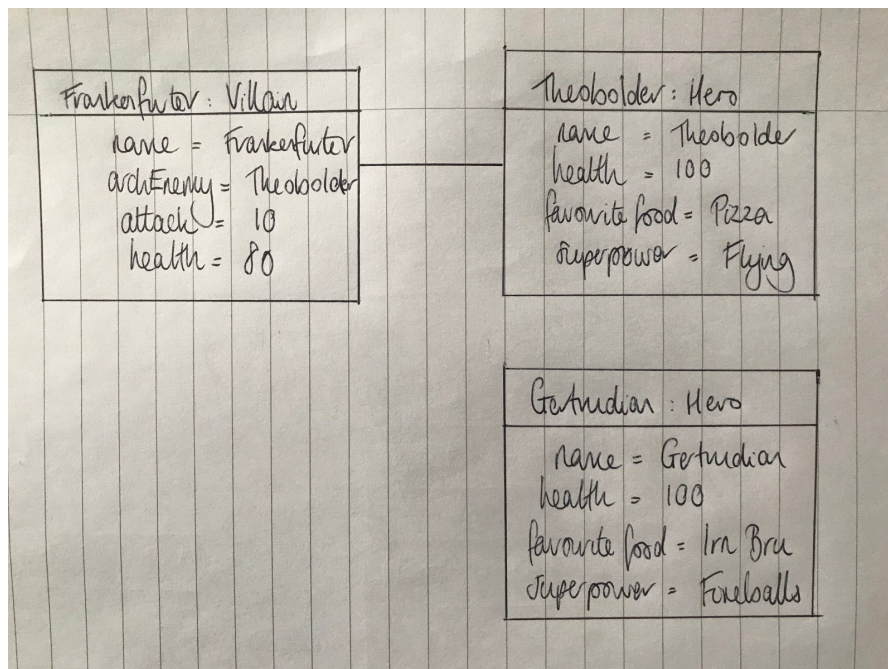 Frankerfurter : Villain
name = Frankerfurter
archEnemy = Theobolder
attack = 10
health = 80
Theobolder : Hero
name = Theobolder
health = 100
favourite food = Pizza
superpower = Flying
Gertrudian : Hero
name = Gertrudian
health = 100
favourite food = Irn Bru
superpower =